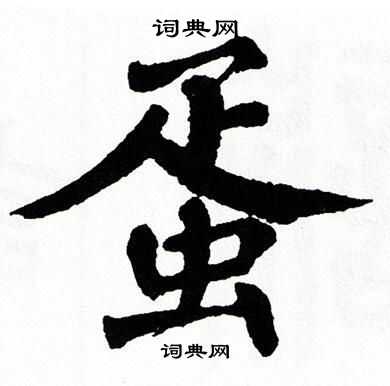 词典网
蛋
词典网